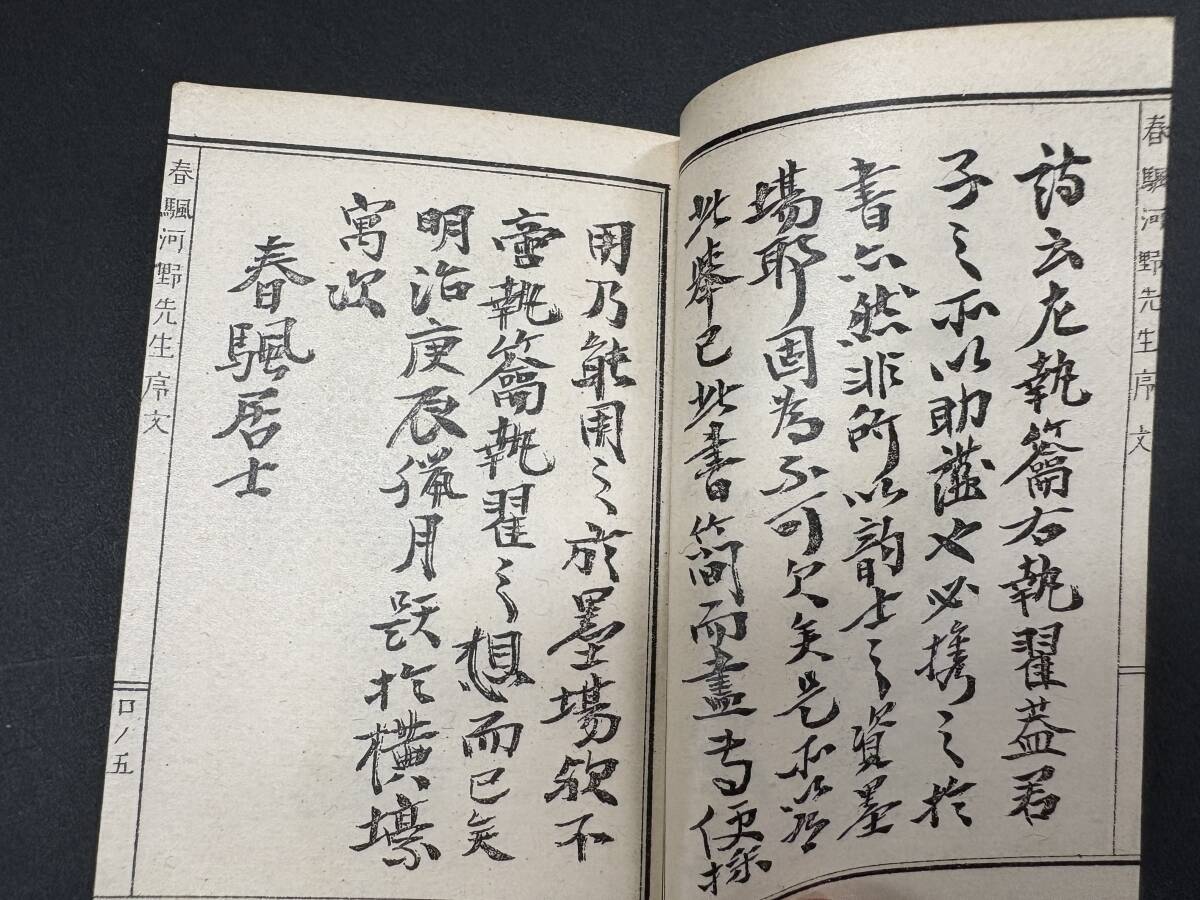 春颿河野先生序文
詩云左執籥右執翟蓋君
子之所以助藻也必携之於
書亦然非所以韵士之資墨
場耶固為不可欠矣是所以
此舉已此書簡而盡尤便採
用乃能用之於墨場欲不
啻執籥執翟之想而已矣
明治庚辰猟月題於橫壕
寓次
春颿居士
春颿河野先生序文
口ノ五